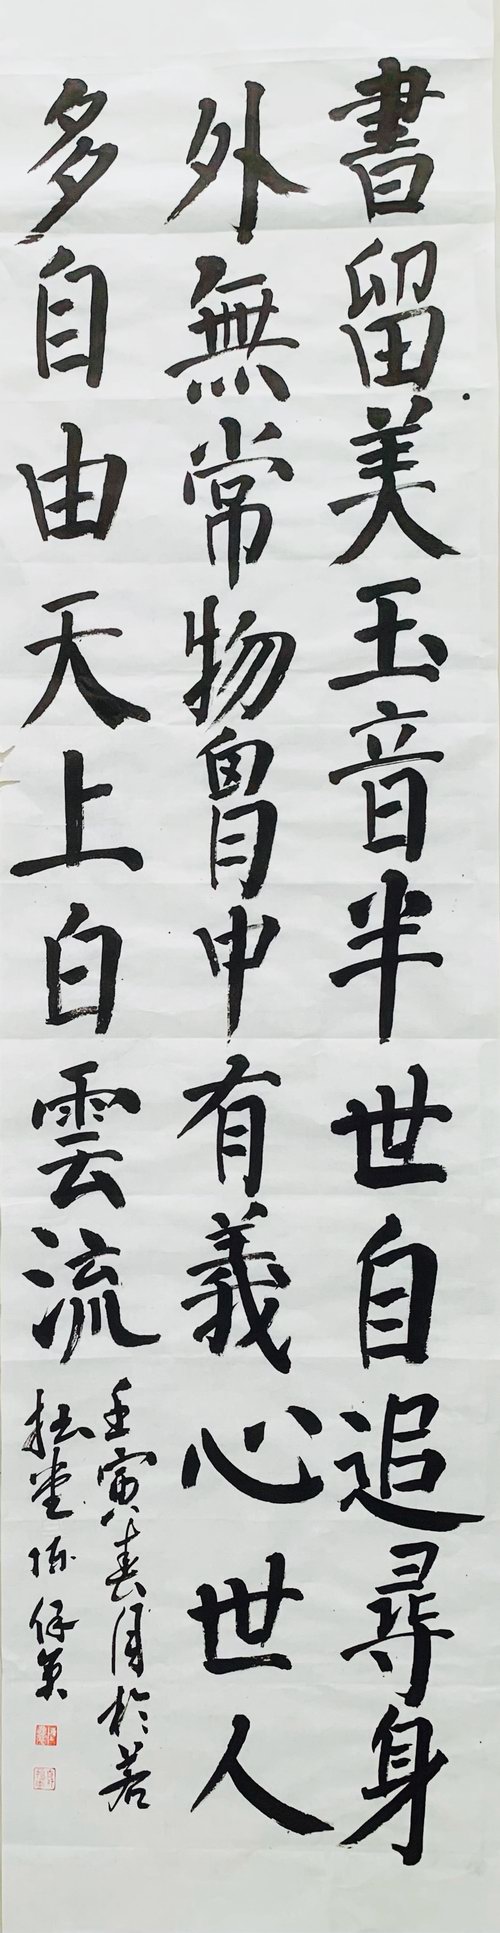 書留美玉音半世自追尋身
外無常物胷中有義心世人
多自由天上白雲流
壬寅春月於若
拙堂